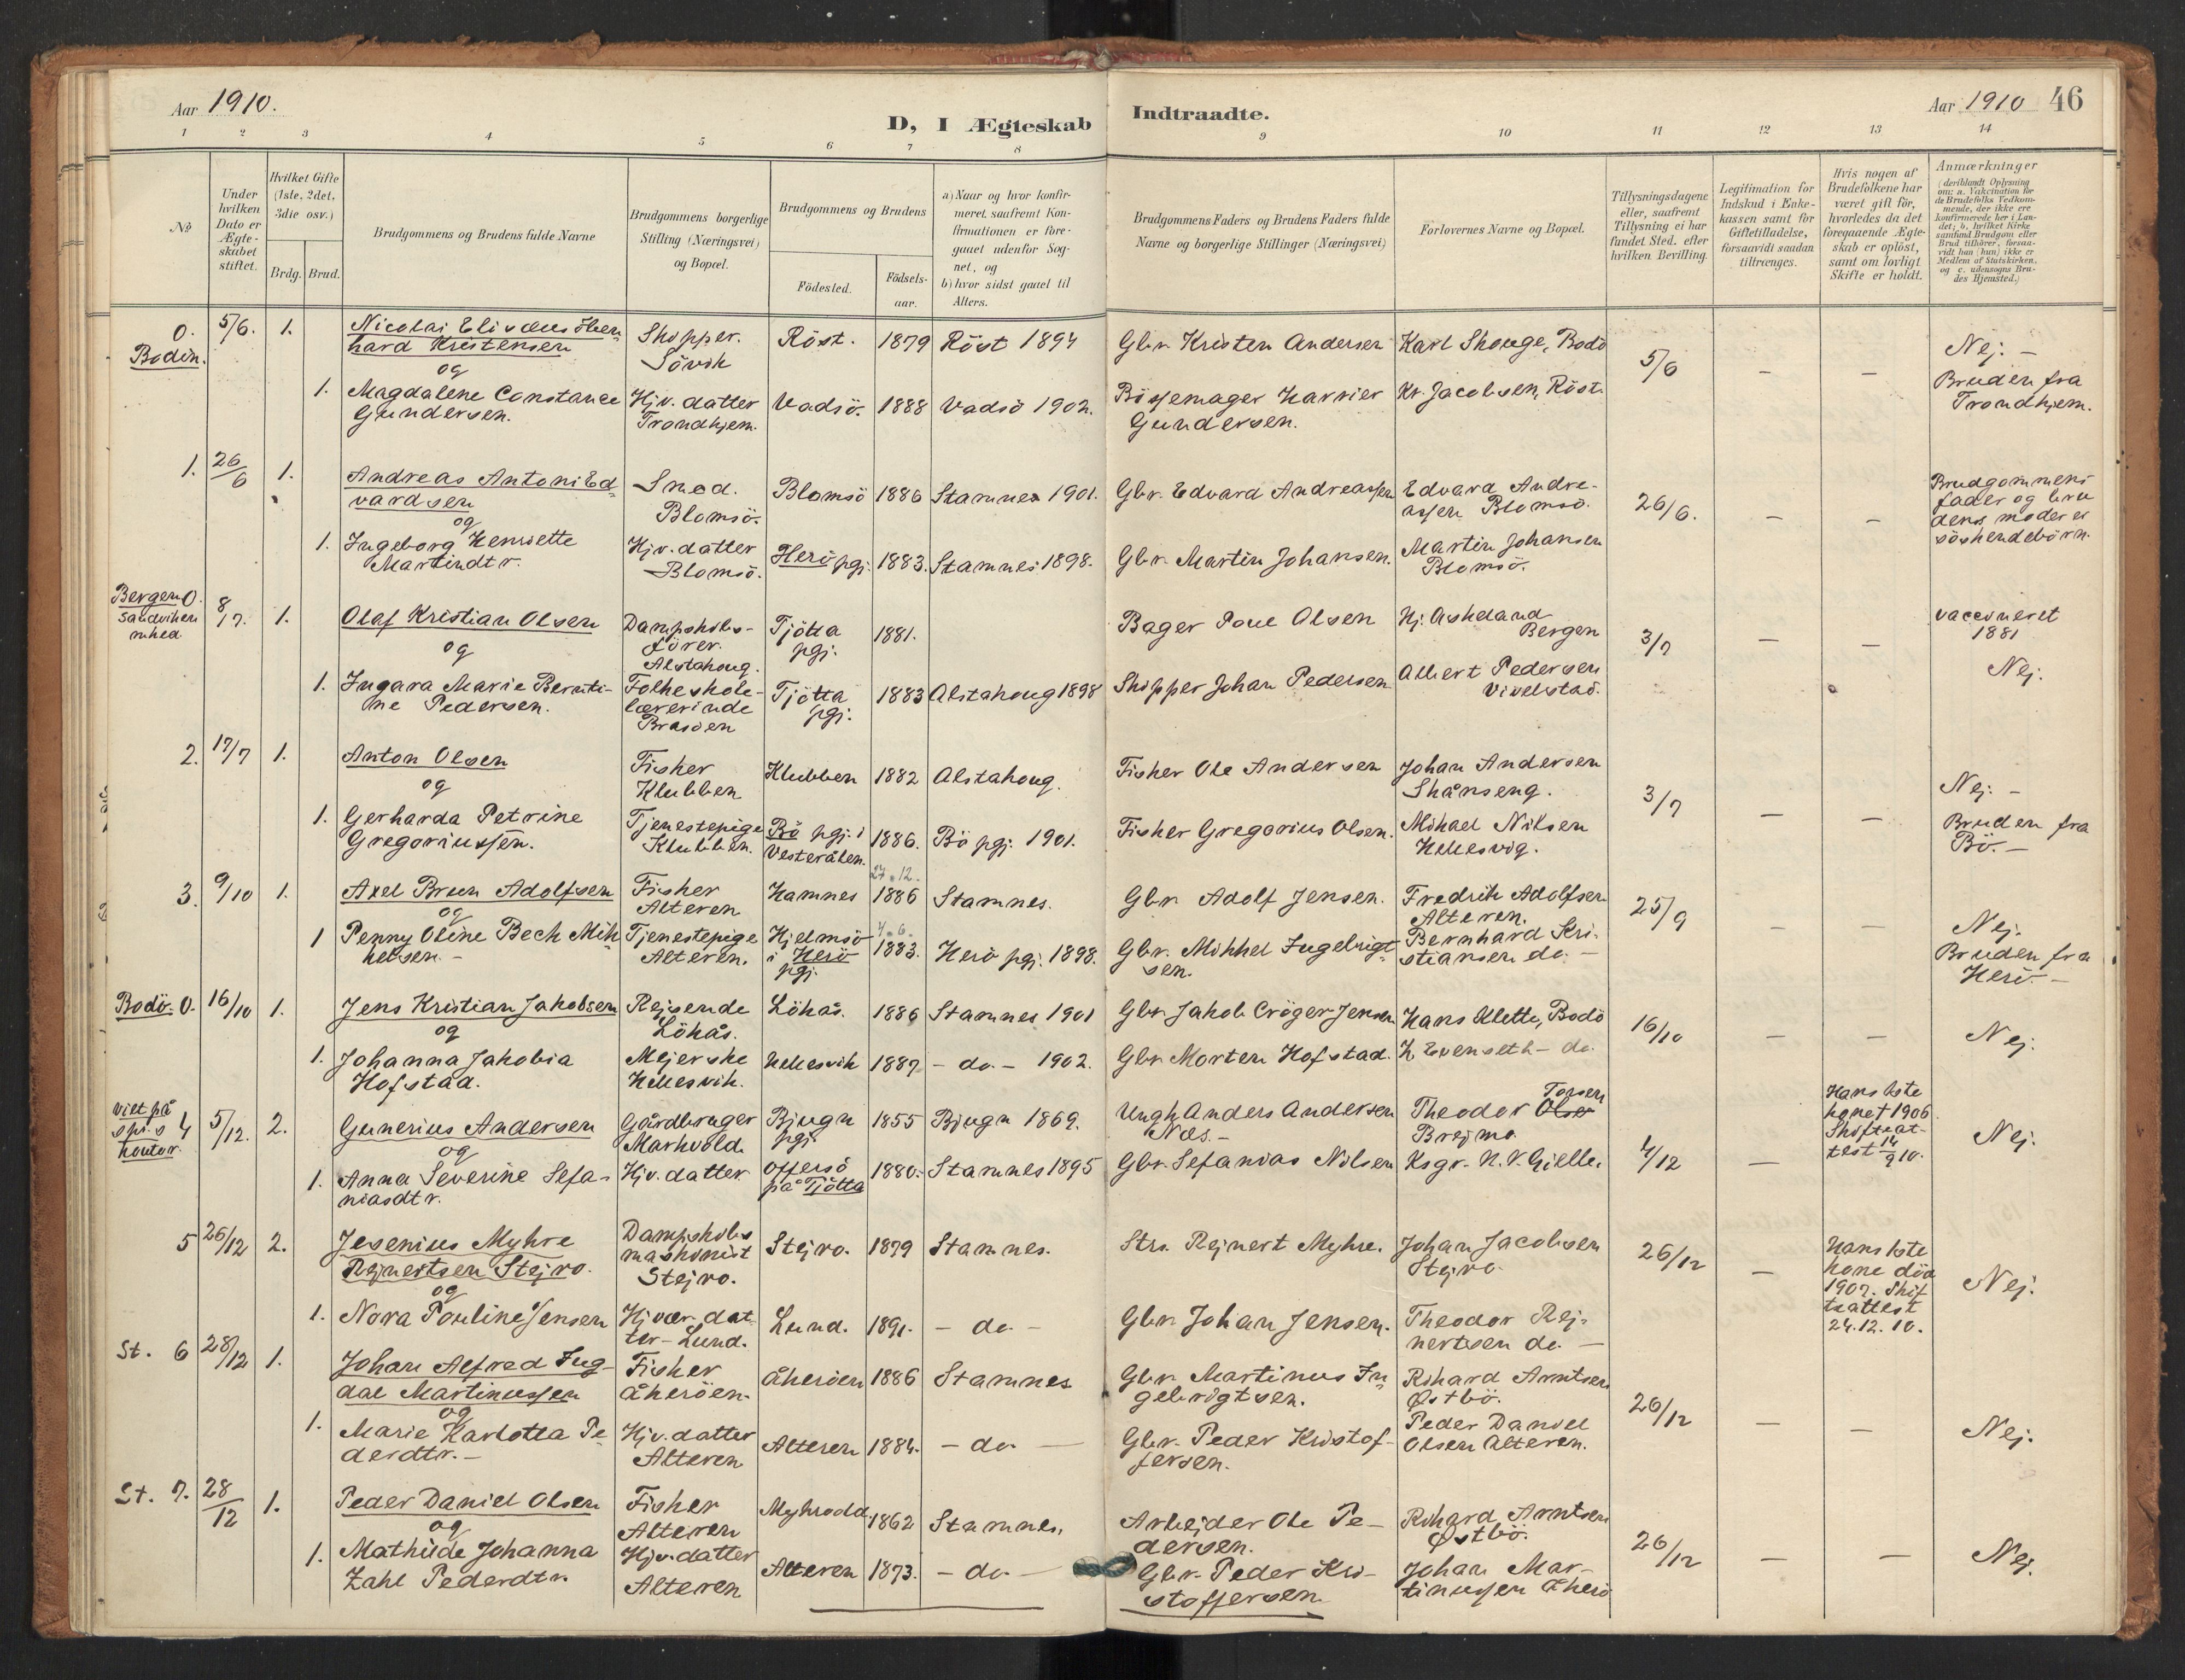 Aar 1910.
D, I Ægteskab
Indtraadte.
Aar 1910 46
1 2 3 4 5 6 7 8 9 10 11 12 13 14
No
Under hvilken Dato er Ægte-skabet stiftet.
Hvilket Gifte (1ste, 2det, 3die osv.)
Brdg. Brud.
Brudgommens og Brudens fulde Navne
Brudgommens borgerlige Stilling (Næringsvei) og Bopæl.
Brudgommens og Brudens
Fødested.
Fødsels-aar.
a) Naar og hvor konfir-
meret, saafremt Kon-
firmationen er fore-
gaaet udenfor Sog-
net, og
b) hvor sidst gaaet til
Alters.
Brudgommens Faders og Brudens Faders fulde
Navne og borgerlige Stillinger (Næringsvei)
Forlovernes Navne og Bopæl.
Tillysningsdagene
eller, saafremt
Tillysning ei har
fundet Sted, efter
hvilken Bevilling.
Legitimation for
Indskud i Enke-
kassen samt for
Giftetilladelse,
forsaavidt saadan
tiltrænges.
Hvis nogen af
Brudefolkene har
været gift før,
hvorledes da det
foregaaende Ægte-
skab er opløst,
samt om lovligt
Skifte er holdt.
Anmærkninger
(deriblandt Oplysning
om: a. Vakcination for
de Brudefolks Vedkom-
mende, der ikke ere
konfirmerede her i Lan-
det; b. hvilket Kirke
samfund Brudgom eller
Brud tilhører, forsaa-
vidt han (hun) ikke er
Medlem af Statskirken,
og c. udensogns Bru-
des Hjemsted.)
0. Bodin. 5/6. 1.
Nicolai Elisæus Öben=
hard Kristensen
og
Skipper.
Sövik
Röst. 1879 Röst 1894
Gbr. Kristen Andersen
Karl Skouge, Bodö
5/6 – –
Nej. –
Bruden fra
Trondhjem.
1. Magdalene Constance
Gundersen.
Hjv. datter
Trondhjem.
Vadsö. 1888 Vadsö 1902.
Bössemager Harrier
Gundersen.
Kr. Jacobsen, Röst.
1. 26/6 1.
Andreas Antoni Ed=
vardsen
og
Smed.
Blomsö.
Blomsö 1886 Stamnes 1901.
Gbr. Edvard Andreassen
Edvard Andre-
assen Blomsö.
26/6. – –
Brudgommens
fader og bru
dens moder er
söskendebörn.
1. Ingeborg Henriette
Martindtr.
Hjv. datter
Blomsö.
Herö pgj. 1883. Stamnes 1898.
Gbr. Martin Johansen.
Martin Johansen
Blomsö.
Bergen 0.
Sandviken
mhed.
8/7. 1.
Olaf Kristian Olsen
og
Dampskibs-
förer.
Alstahoug.
Tjötta
pgj.
1881.
Bager Poul Olsen
Hj. Askeland
Bergen
3/7 – –
vaccineret
1881
Nej.
1. Ingara Marie Bernti-
ne Pedersen.
Folkeskole-
lærerinde
Brasöen
Tjötta
pgj.
1883 Alstahoug 1898
Skipper Johan Pedersen
Albert Pedersen
2. 17/7 1.
Anton Olsen
og
Fisker
Klubben
Klubben 1882 Alstahoug.
Fisker Ole Andersen
Johan Andersen
Skånseng.
3/7 – –
Nej. –
Bruden fra
Bö. –
1. Gerharda Petrine
Gregoriussen.
Tjenestepige
Klubben.
Bö pgj. i
Vesterålen.
1886. Bö pgj. 1901.
Fisker Gregorius Olsen.
Mikael Nilsen
Hellesvig.
3. 9/10 1.
Axel Bruun Adolfsen
og
Fisker
Alteren
Hamnes 27.12. 1886 Stamnes.
Gbr. Adolf Jensen.
Fredrik Adolfsen
Alteren.
25/9 – –
Nej.
Bruden fra
Herö –
1 Penny Oline Bech Mik=
kelsen. –
Tjenestepige
Alteren.
Hjelmsö
i Herö
pgj.
4.6. 1883. Herö pgj. 1898.
Gbr. Mikkel Ingebrigt=
sen.
Bernhard Kri-
stiansen do. –
Bodö. 0. 16/10 1.
Jens Kristian Jakobsen
og
Rejsende
Löhås.
Löhås. 1886 Stamnes 1901
Gbr. Jakob Cröger Jensen
Hans Klette, Bodö
16/10 – –
Nej.
1. Johanna Jakobia
Hofstad.
Mejerske
Hellesvik.
Hellesvik 1887 – do. – 1902.
Gbr. Morten Hofstad.
H. Evenseth – do.
viet på
spr.s
kontor.
4 5/12. 2.
Gunerius Andersen
og
Gårdbruger
Markvold.
Bjugn
pgj.
1855 Bjugn 1869.
Ungk. Anders Andersen
Næs. –
Theodor Olsen Torsen
Brejmo.
4/12 –
Hans 1ste
kone † 1906
Skifteat-
test 14/9 10.
Nej.
1. Anna Severine Sefa-
niasdtr.
Hjv. datter
Offersö
på Tjötta
1880. Stamnes 1895
Gbr. Sefanias Nilsen
Ksgr. N. V. Gielle.
5 26/12 2.
Jesenius Myhre
Rejnertsen Stejro.
og
Dampskibs
maskinist
Stejro.
Stejro. 1879 Stamnes.
Strs. Rejnert Myhre.
Johan Jacobsen
Stejro.
26/12 –
Hans 1ste
kone död
1907. Skif
teattest
24.12.10.
Nej.
1. Nora Pouline Jensen
Hjvær. dat
ter – Lund.
Lund. 1891. – do –
Gbr. Johan Jensen.
Theodor Rej-
nertsen do –
St. 6 28/12 1.
Johan Alfred Ing-
dal Martinussen
og
Fisker
åkeröen.
åkeröen 1886 Stamnes
Gbr. Martinus In=
gebrigtsen.
Rikard Arntsen
Østbö.
26/12 – –
Nej.
1. Marie Karlotta Pe=
derdtr. –
Hjv. datter
Alteren
Alteren 1884. – do –
Gbr. Peder Kristof-
fersen.
Peder Daniel
Olsen Alteren.
St. 7. 28/12 1.
Peder Daniel Olsen
og
Fisker
Alteren
Myhrodd. 1862 Stamnes.
Arbejder Ole Pe-
dersen.
Rikard Arntsen
Østbö.
26/12 – –
Nej.
1. Mathilde Johanna
Zahl Pederdtr.
Hjv. datter
Alteren
Alteren 1873. – do –
Gbr. Peder Kri-
stoffersen.
Johan Mar-
tinussen åkerö